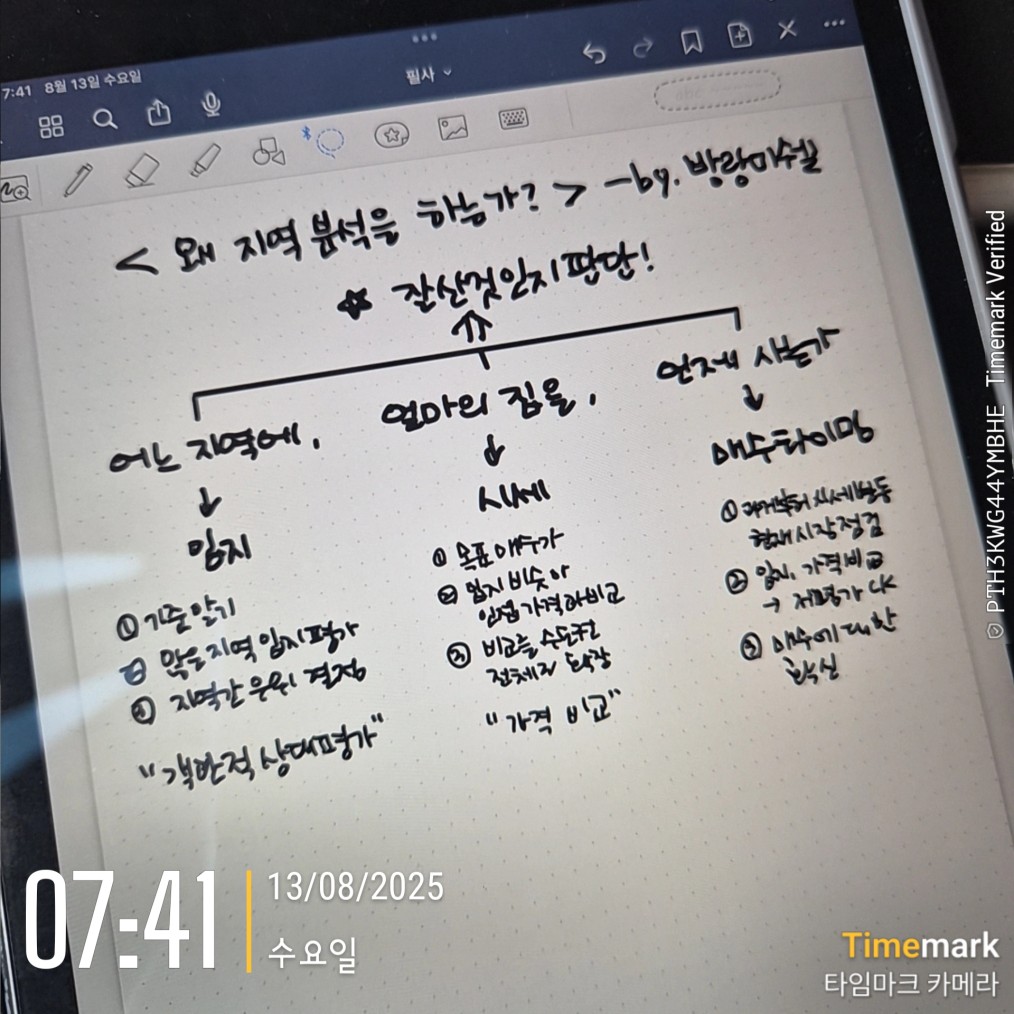 7:41 8월 13일 수요일
필사
< 왜 지역 분석을 하는가? > -by. 방랑미쉘
잘산것인지 판단!
어느 지역에,
얼마의 집을,
언제 사는가
입지
시세
매수타이밍
① 기준 알기
② 많은 지역 입지평가
③ 지역간 우위 결정
"객관적 상대평가"
① 목표 매수가
② 입지 비슷한
인접 가격과 비교
③ 비교를 수도권
전체로 확장
"가격 비교"
① 과거부터 시세변동
현재 시장 점검
② 입지, 가격비교
→ 저평가 CK
③ 매수에 대한
확신
07:41
13/08/2025
수요일
Timemark
타임마크 카메라
PTH3KWG44YMBHE Timemark Verified